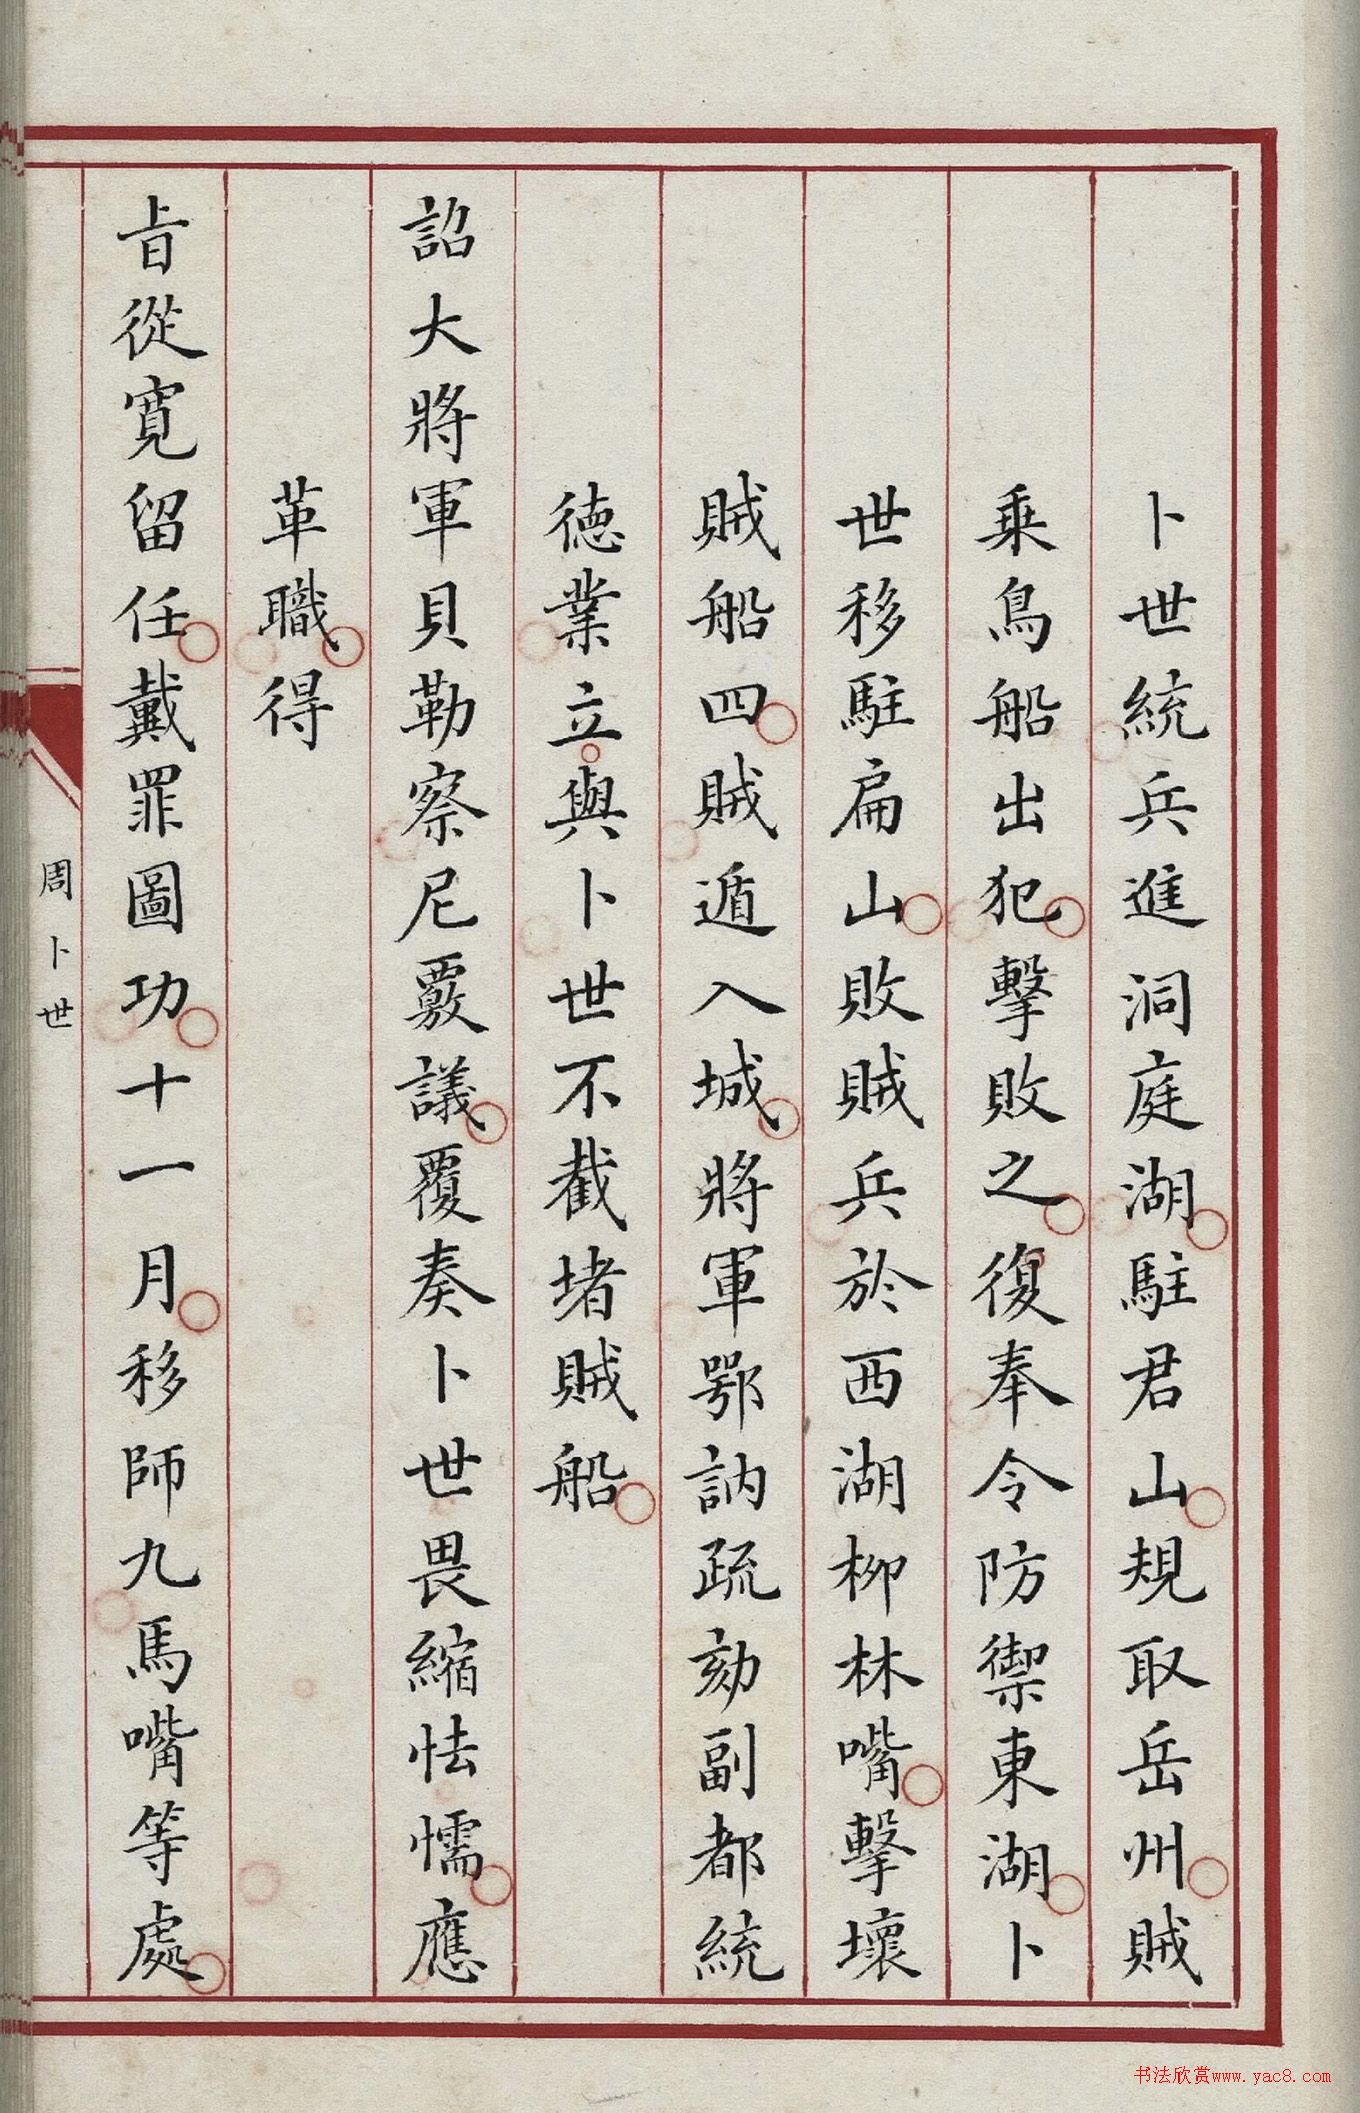 卜世統兵進洞庭湖駐君山規取岳州賊
乘鳥船出犯擊敗之復奉令防禦東湖卜
世移駐扁山敗賊兵於西湖柳林嘴擊壞
賊船四賊遁入城將軍鄂訥疏劾副都統
德業立與卜世不截堵賊船
詔大將軍貝勒察尼覈議覆奏卜世畏縮怯懦應
革職得
旨從寬留任戴罪圖功十一月移師九馬嘴等處
周卜世
书法欣赏www.yac8.com